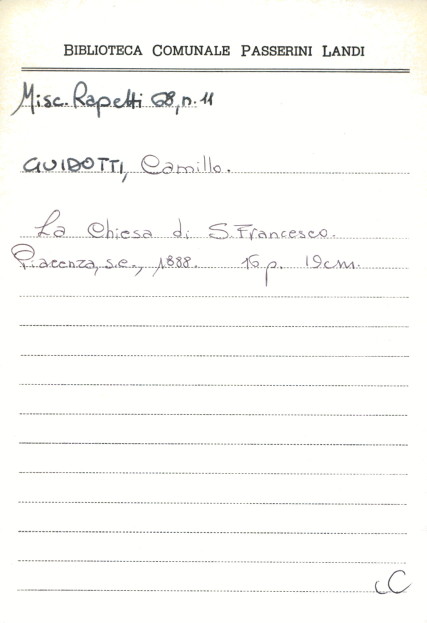 BIBLIOTECA COMUNALE PASSERINI LANDI
Misc. Rapetti 68, n. 11
GUIDOTTI, Camillo.
La Chiesa di S. Francesco.
Piacenza, s.e., 1888. 16 p. 19cm.